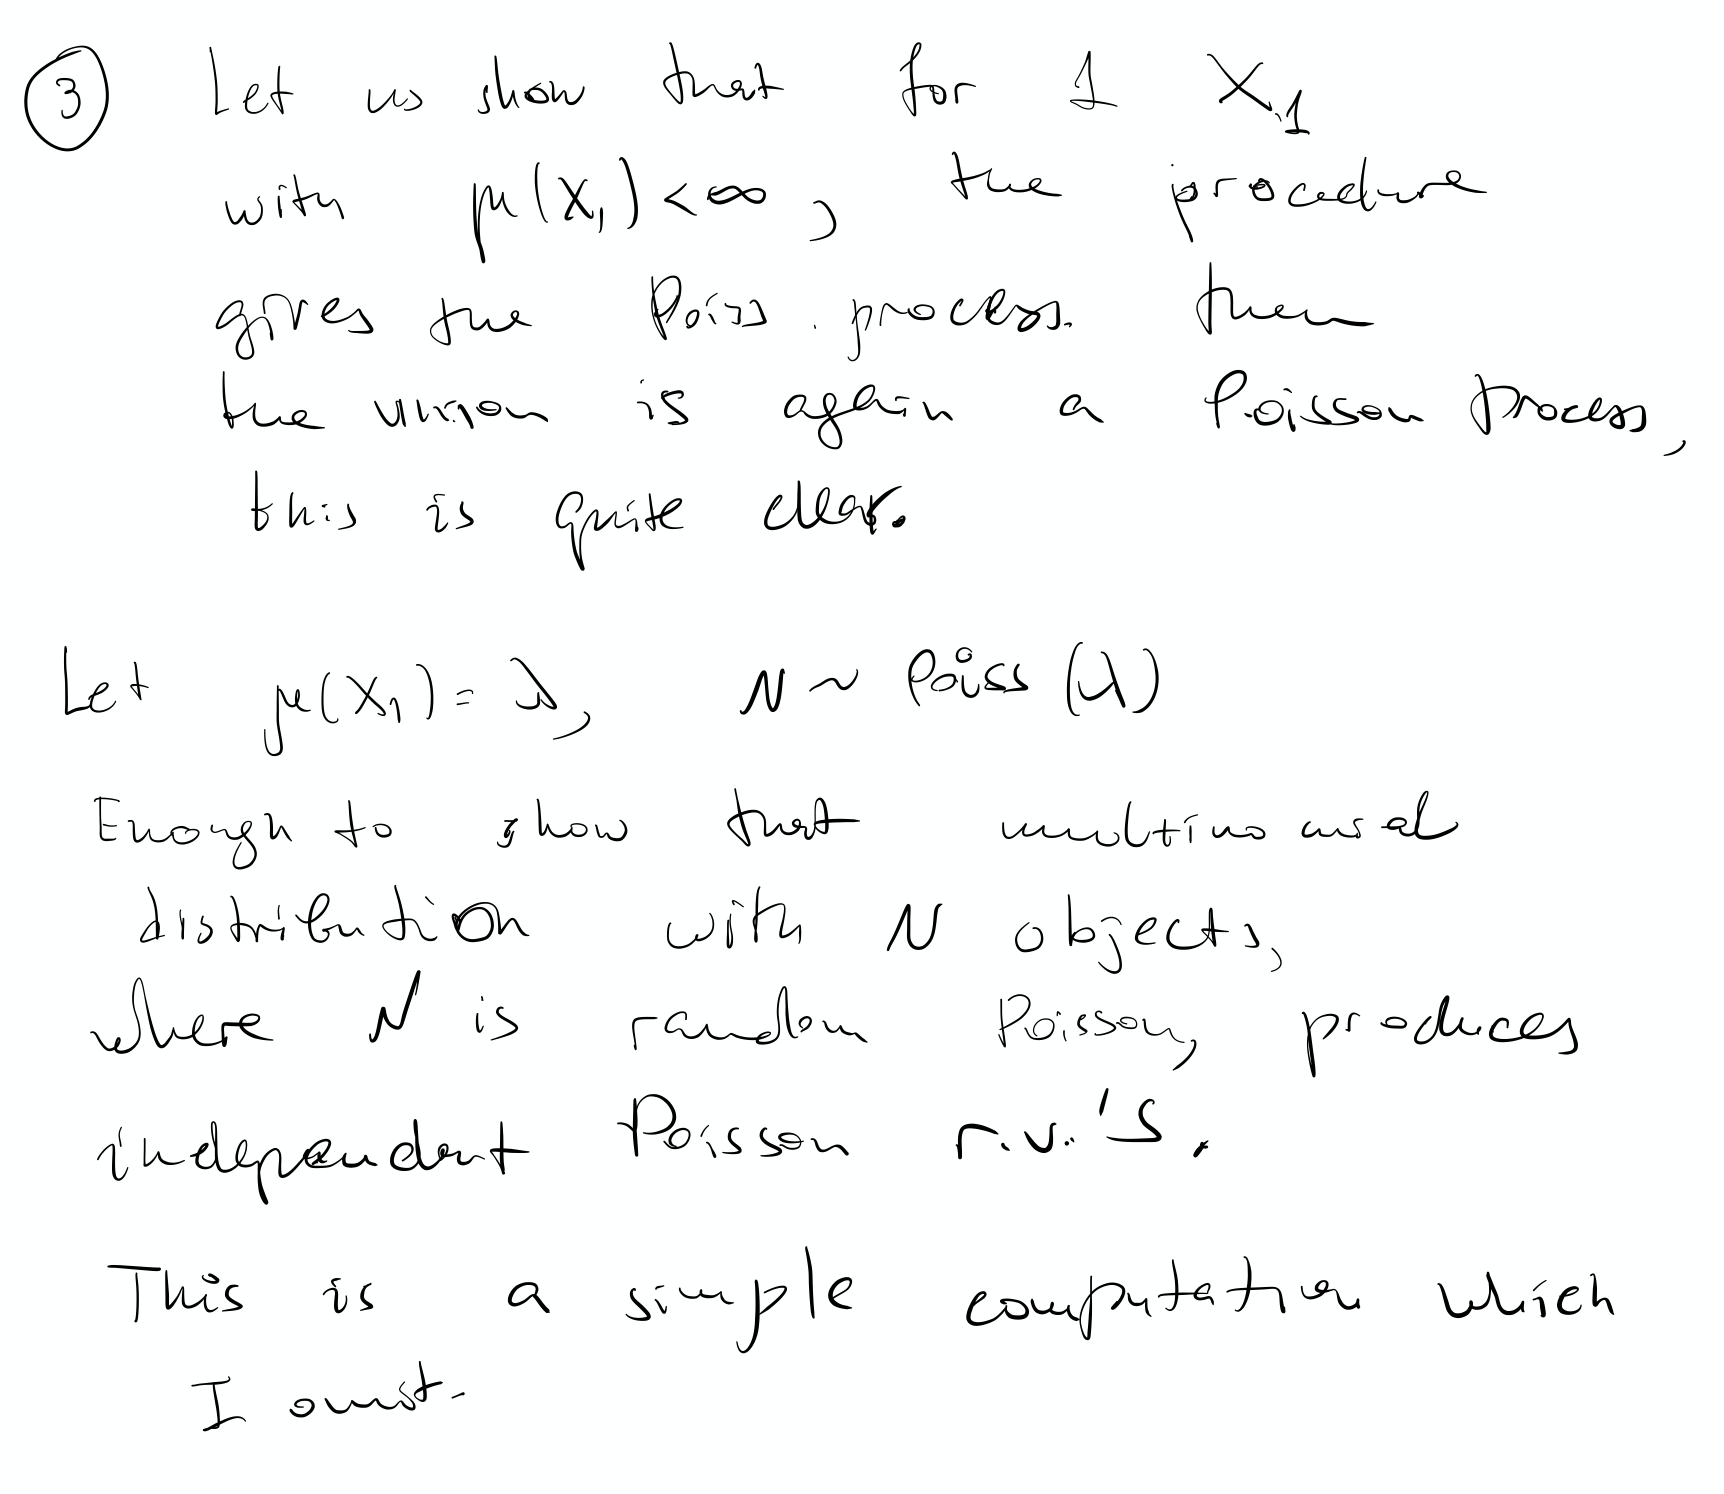 ③ Let us show that for 1 X₁
with μ(X₁) < ∞, the procedure
gives the Poiss. process. Then
the union is again a Poisson process,
this is quite clear.
Let μ(X₁) = λ, N ~ Poiss (λ)
Enough to show that multinomial
distribution with N objects,
where N is random Poisson, produces
independent Poisson r.v.'s.
This is a simple computation which
I omit.